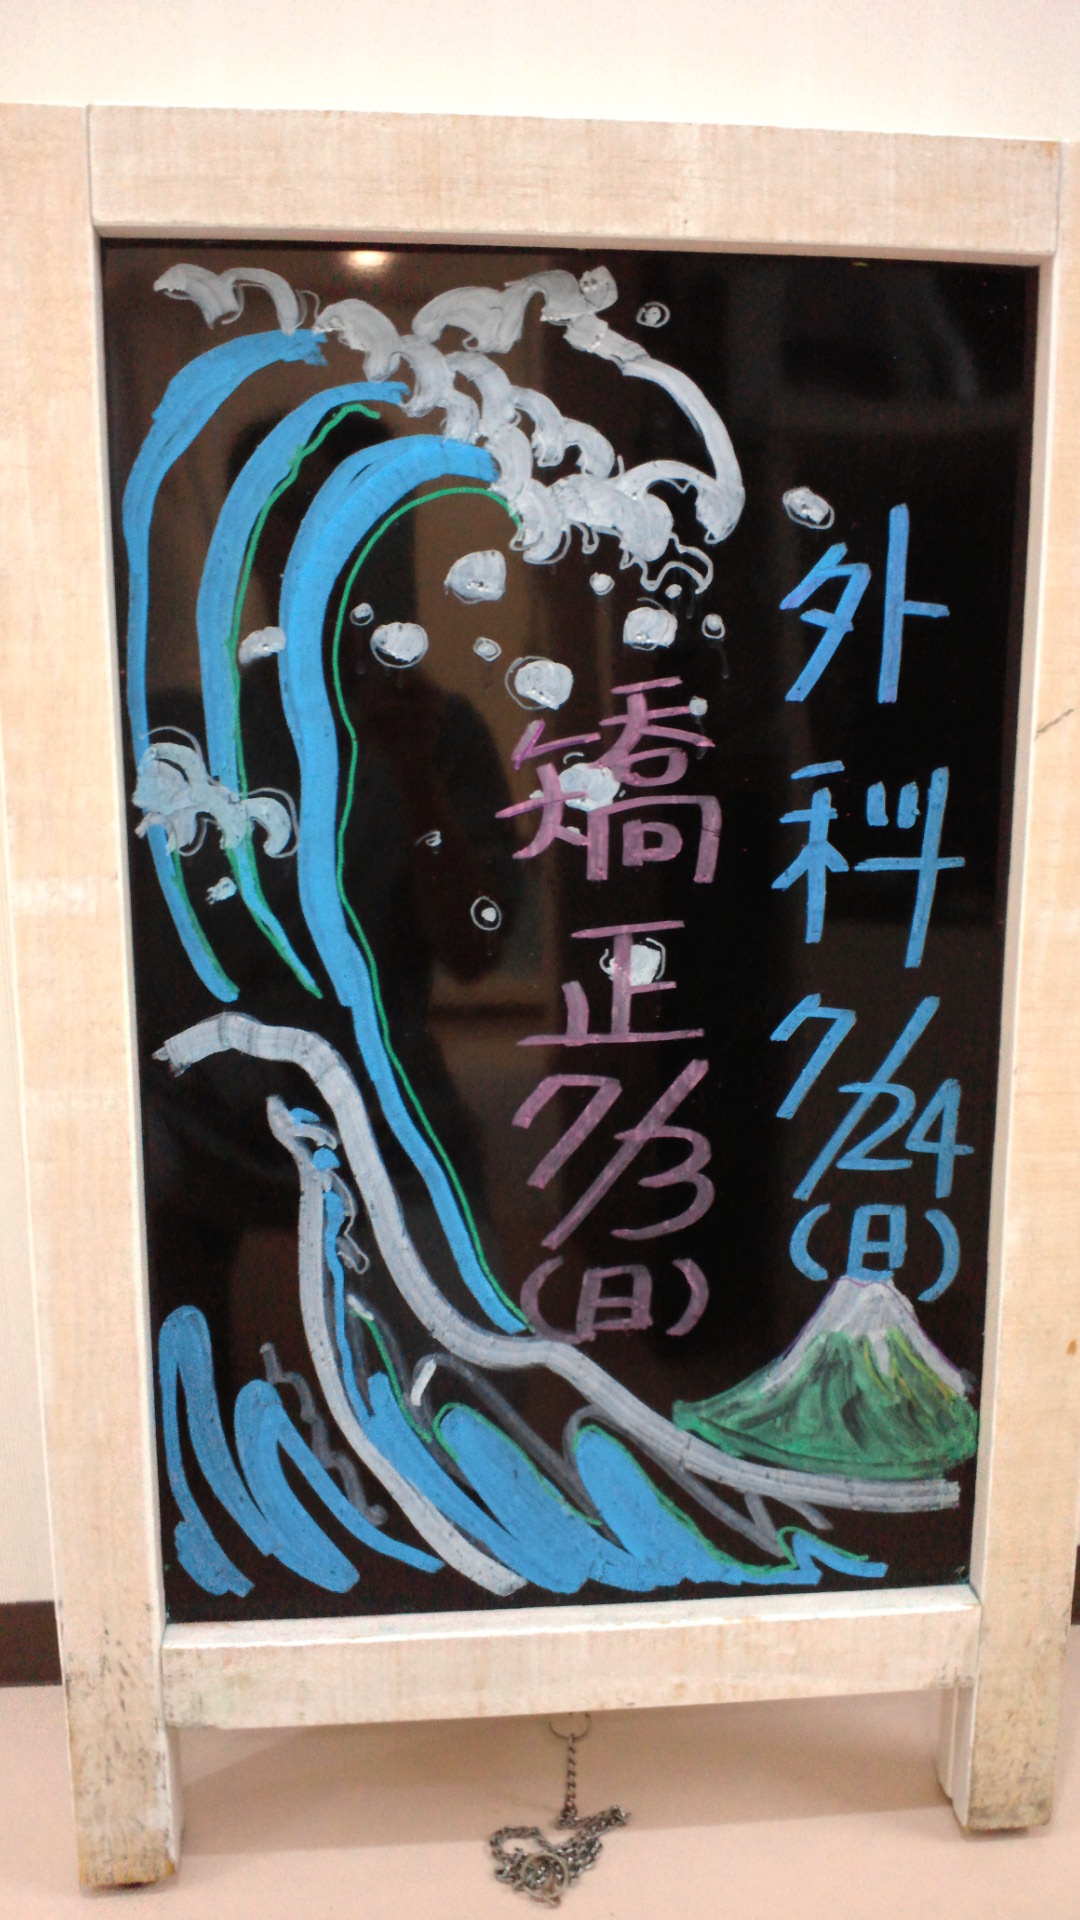 外科7/24(日)
矯正7/3(日)